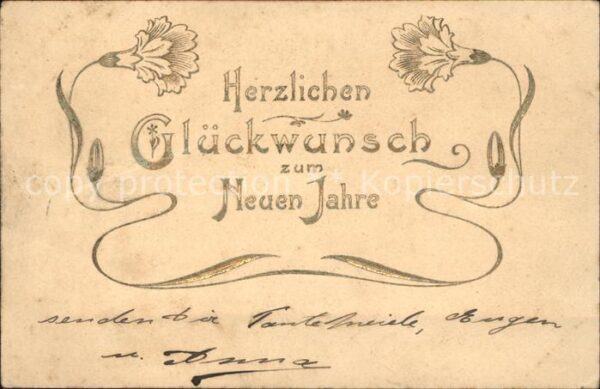 Herzlichen
Glückwunsch
zum
Neuen Jahre
copy protection * Kopierschutz
senden Dir Tante, Eugen
u. Anna